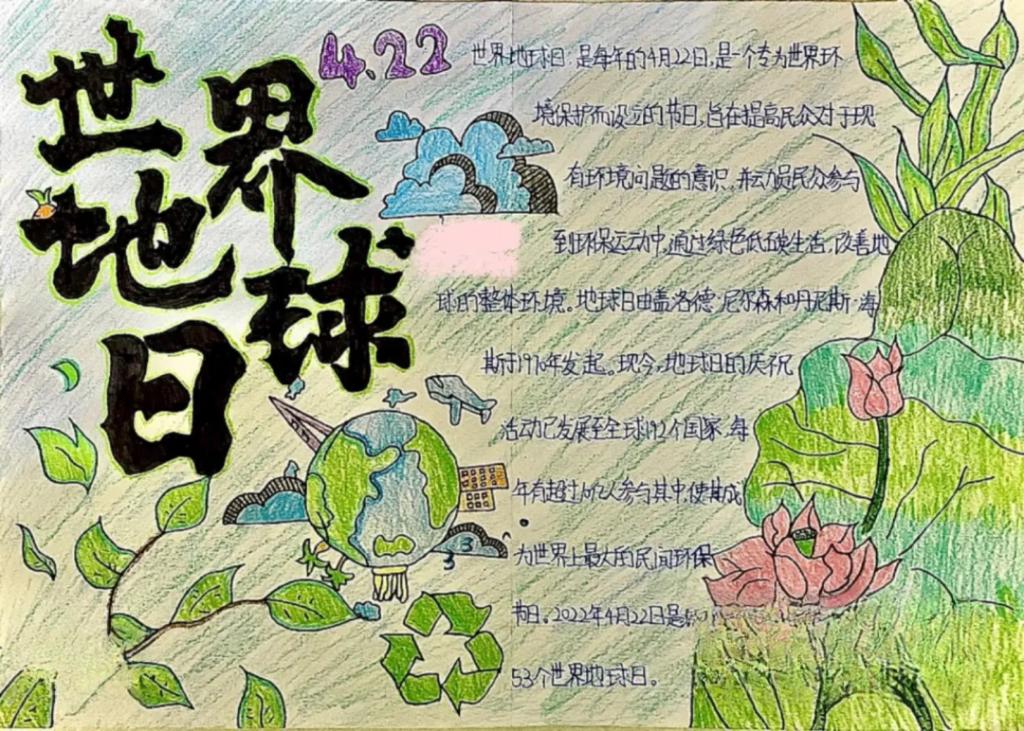 世界
地球
日
4.22
世界地球日:是每年的4月22日,是一个专为世界环
境保护而设立的节日,旨在提高民众对于现
有环境问题的意识,并动员民众参与
到环保运动中,通过绿色低碳生活,改善地
球的整体环境。地球日由盖洛德·尼尔森和丹尼斯·海
斯于1970年发起。现今,地球日的庆祝
活动已发展至全球192个国家,每
年有超过10亿人参与其中,使其成
为世界上最大的民间环保
节日。2022年4月22日是
53个世界地球日。